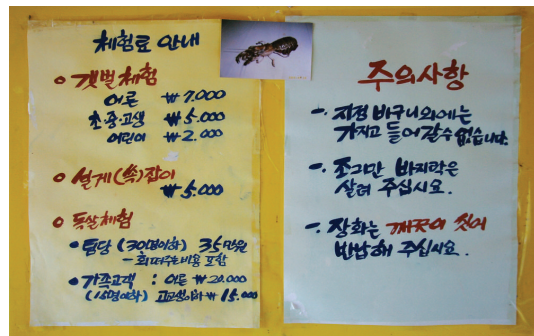 체험료 안내
• 갯벌체험
어른 ₩7.000
초.중.고생 ₩5.000
어린이 ₩2.000
• 설게(쏙)잡이
₩5.000
• 독살체험
• 팀당 (30명이하) 35만원
- 회떠주는비용 포함
• 가족고객 : 어른 ₩20.000
(15명이하) 고교생이하 ₩15.000
주의사항
-. 지정 바구니외에는
가지고 들어갈수 없습니다.
-. 조그만 바지락은
살려 주십시요.
-. 장화는 깨끗이 씻어
반납해 주십시요.